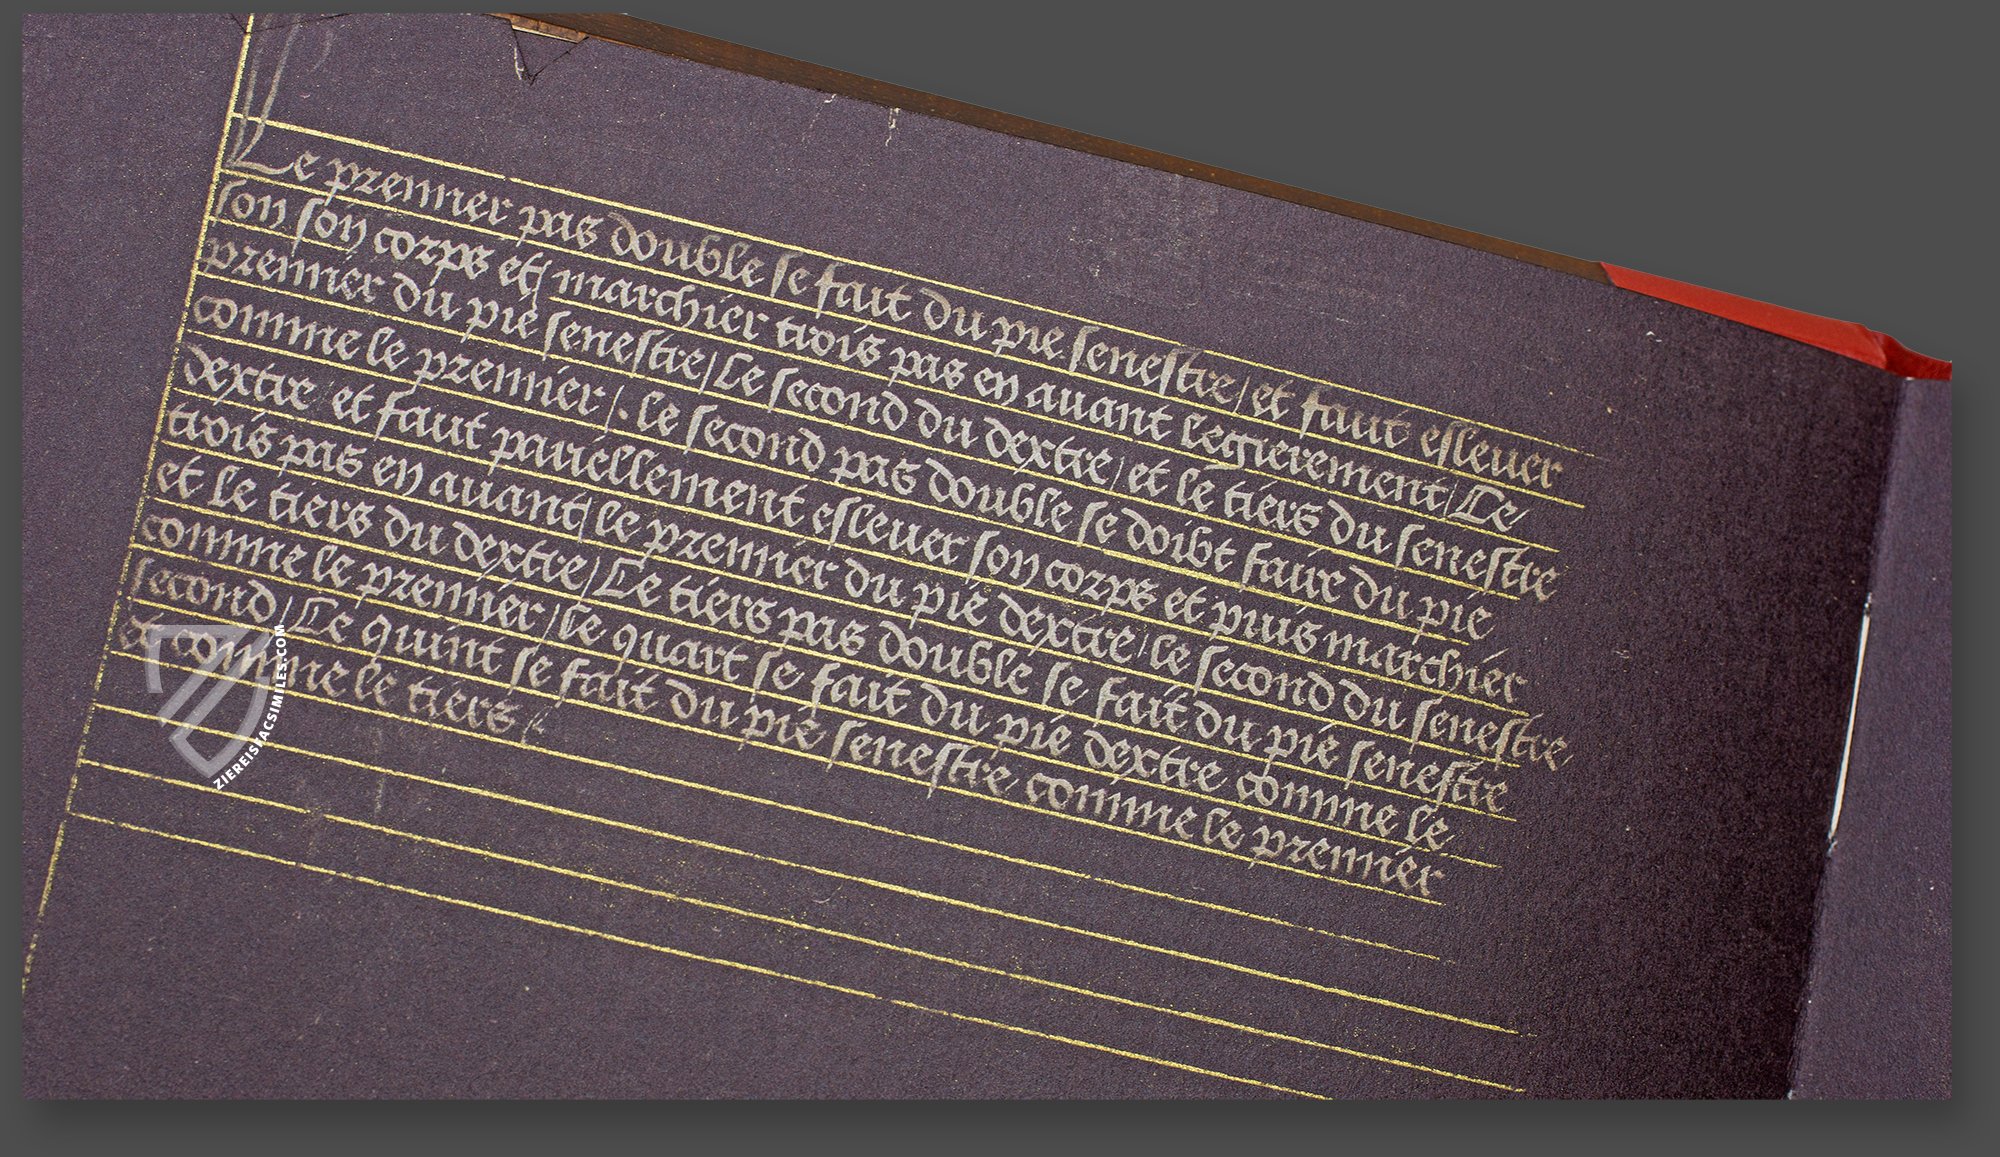 Le premier pas double se fait du pie senestre / et fault esleuer
son son corps et marchier trois pas en auant legierement / Le
premier du pie senestre / Le second du dextre / et le tiers du senestre
comme le premier / . le second pas double se doibt faire du pie
dextre et fault pariellement esleuer son corps et puis marchier
trois pas en auant / le premier du pie dextre / le second du senestre
et le tiers du dextre / Le tiers pas double se fait du pie senestre
comme le premier / Le quart se fait du pie dextre comme le
second / Le quint se fait du pie senestre comme le premier
et comme le tiers /
ZIEREISFACSIMILES.COM